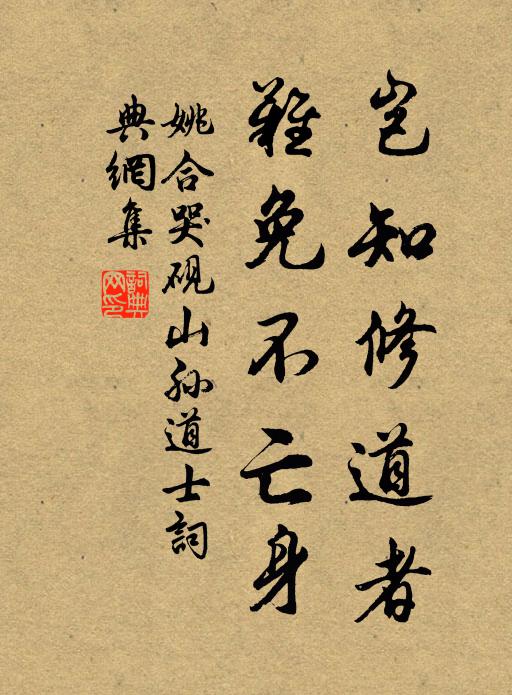 岂知修道者
難免不亡身
姚合哭砚山孙道士詞
典網集
詞典网印